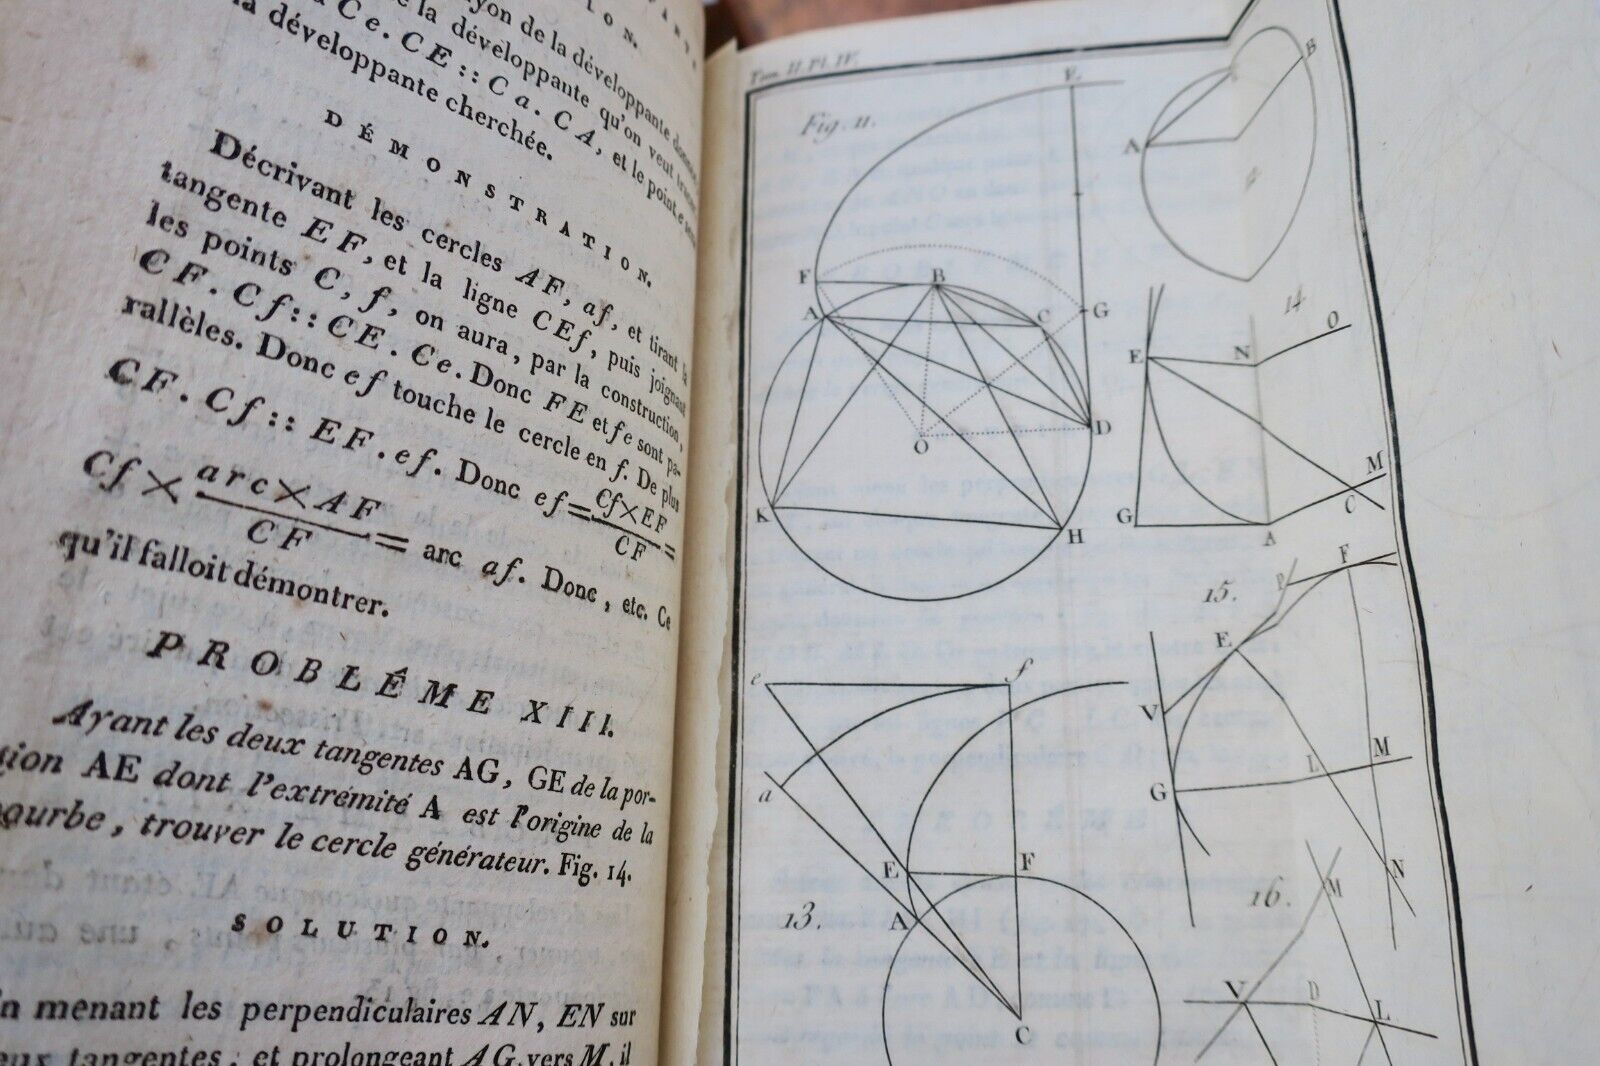 LON.
yon de la développante donnée
la développante qu'on veut tracer
Ce. CE :: Ca. CA, et le point e sera
la développante cherchée.
DÉMONSTRATION.
Décrivant les cercles AF, af, et tirant la
tangente EF, et la ligne CEf, puis joignant
les points C, f, on aura, par la construction,
CF. Cf :: CE. Ce. Donc FE et fe sont pa-
rallèles. Donc ef touche le cercle en f. De plus
CF. Cf :: EF. ef. Donc ef = Cf×EF / CF =
Cf × arc×AF / CF = arc af. Donc, etc. Ce
qu'il falloit démontrer.
PROBLÊME XIII.
Ayant les deux tangentes AG, GE de la por-
tion AE dont l'extrémité A est l'origine de la
courbe, trouver le cercle générateur. Fig. 14.
SOLUTION.
En menant les perpendiculaires AN, EN sur
eux tangentes, et prolongeant AG vers M, il
Tom. II. Pl. IV.
Fig. 11.
E
F
B
A
C
G
D
O
K
H
B
A
14
O
E
N
M
C
G
A
15.
P
F
E
V
M
L
G
N
e
f
a
E
F
13.
A
C
16.
M
V
D
L